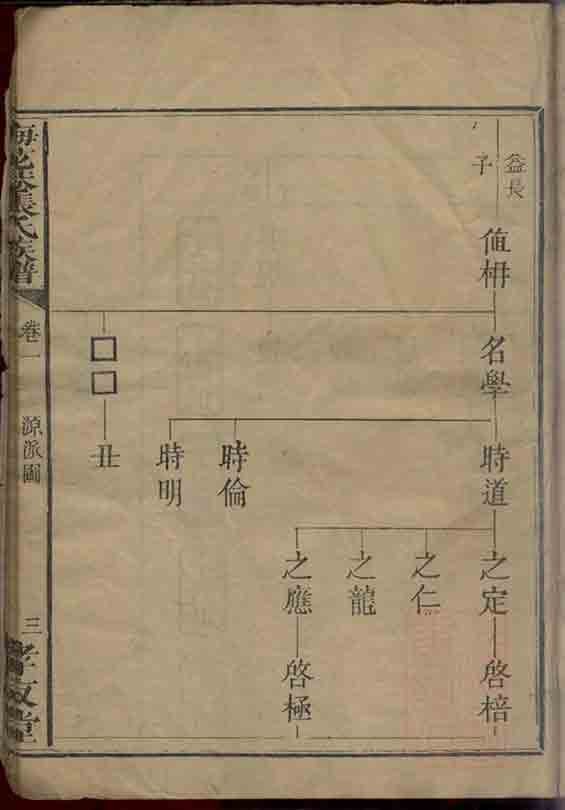 益長
子
值枬
名學
時道
之定
啓棓
之仁
之龍
之應
啓極
時倫
時明
□□
丑
張氏族譜
卷一
源派圖
三
孝友堂